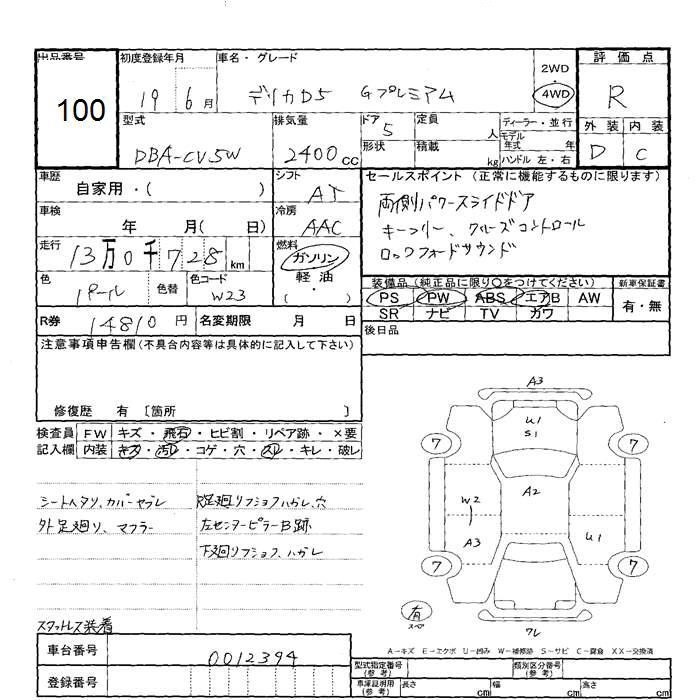 出品番号
100
初度登録年月
19 6月
車名・グレード
デリカD5 Gプレミアム
2WD
4WD
評価点
R
外装 内装
D C
型式
DBA-CV5W
排気量
2400 cc
ドア
5
形状
定員
人
積載
kg
ディーラー・並行
モデル
年式 年
ハンドル 左・右
車歴
自家用・( )
シフト
AT
車検
年 月( 日)
冷房
AAC
走行
13万0千728km
燃料
ガソリン
軽油
( )
色
パール
色替
色コード
W23
セールスポイント (正常に機能するものに限ります)
両側パワースライドドア
キーフリー、クルーズコントロール
ロックフォードサウンド
装備品(純正品に限り〇をつけてください)
PS PW ABS エアB AW
SR ナビ TV ガワ
新車保証書
有・無
R券 14810円
名変期限 月 日
後日品
注意事項申告欄(不具合内容等は具体的に記入して下さい)
修復歴 有 〔箇所 〕
検査員
記入欄
FW キズ・飛石・ヒビ割・リペア跡・×要
内装 キズ・汚れ・コゲ・穴・スレ・キレ・破レ
シートヘタリ、カバーヤブレ
外足廻り、マフラー
R足廻りフショクハガレ、穴
左センターピラーB跡
下廻リフショク、ハガレ
スタットレス装着
A3
U1
S1
7 7
A2
W2
A3
U1
7 7
有
スペア
ワレ
A-キズ E-エクボ U-凹み W-補修跡 S-サビ C-腐食 XX-交換済
車台番号
0012394
登録番号
型式指定番号
(参考)
類別区分番号
(参考)
車庫証明用
(参考)
長さ cm 幅 cm 高さ cm